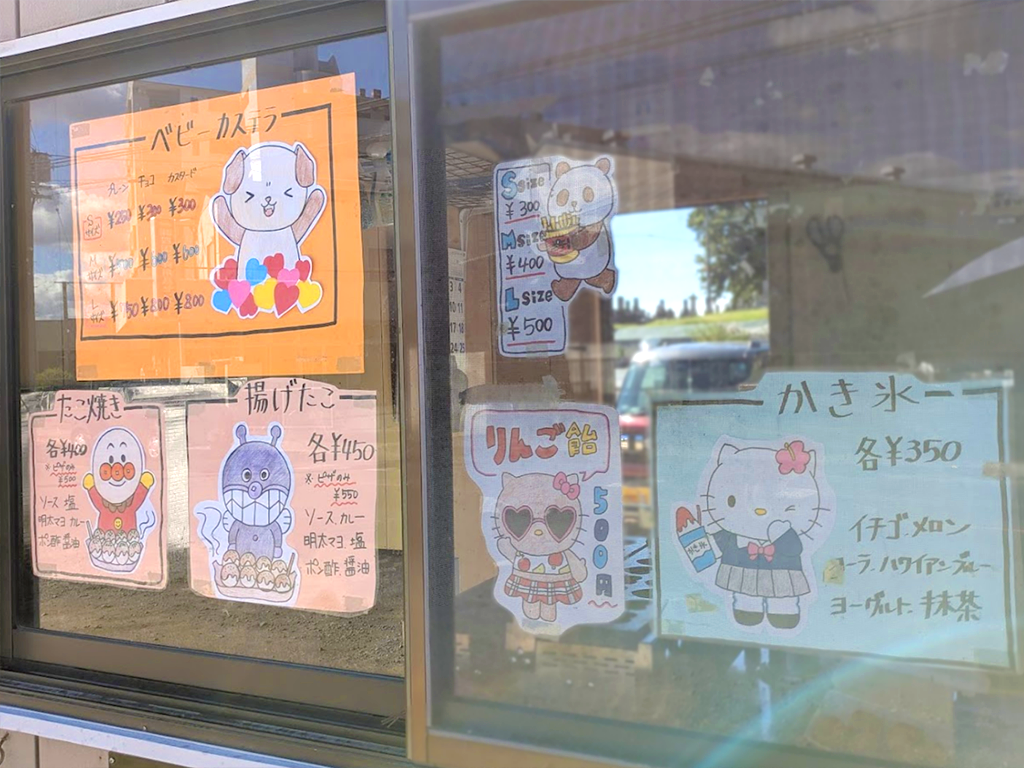 ベビーカステラ
プレーン チョコ カスタード
Sサイズ ¥250 ¥300 ¥300
サイズ
サイズ ¥800 ¥800
たこ焼き
各¥400
※ピザのみ
¥500
ソース 塩
明太マヨ カレー
ポン酢 醤油
揚げたこ
各¥450
※ピザのみ
¥550
ソース カレー
明太マヨ 塩
ポン酢 醤油
S size
¥300
M size
¥400
L size
¥500
りんご飴
500円
かき氷
各¥350
イチゴ メロン
コーラ ハワイアンブルー
ヨーグルト 抹茶